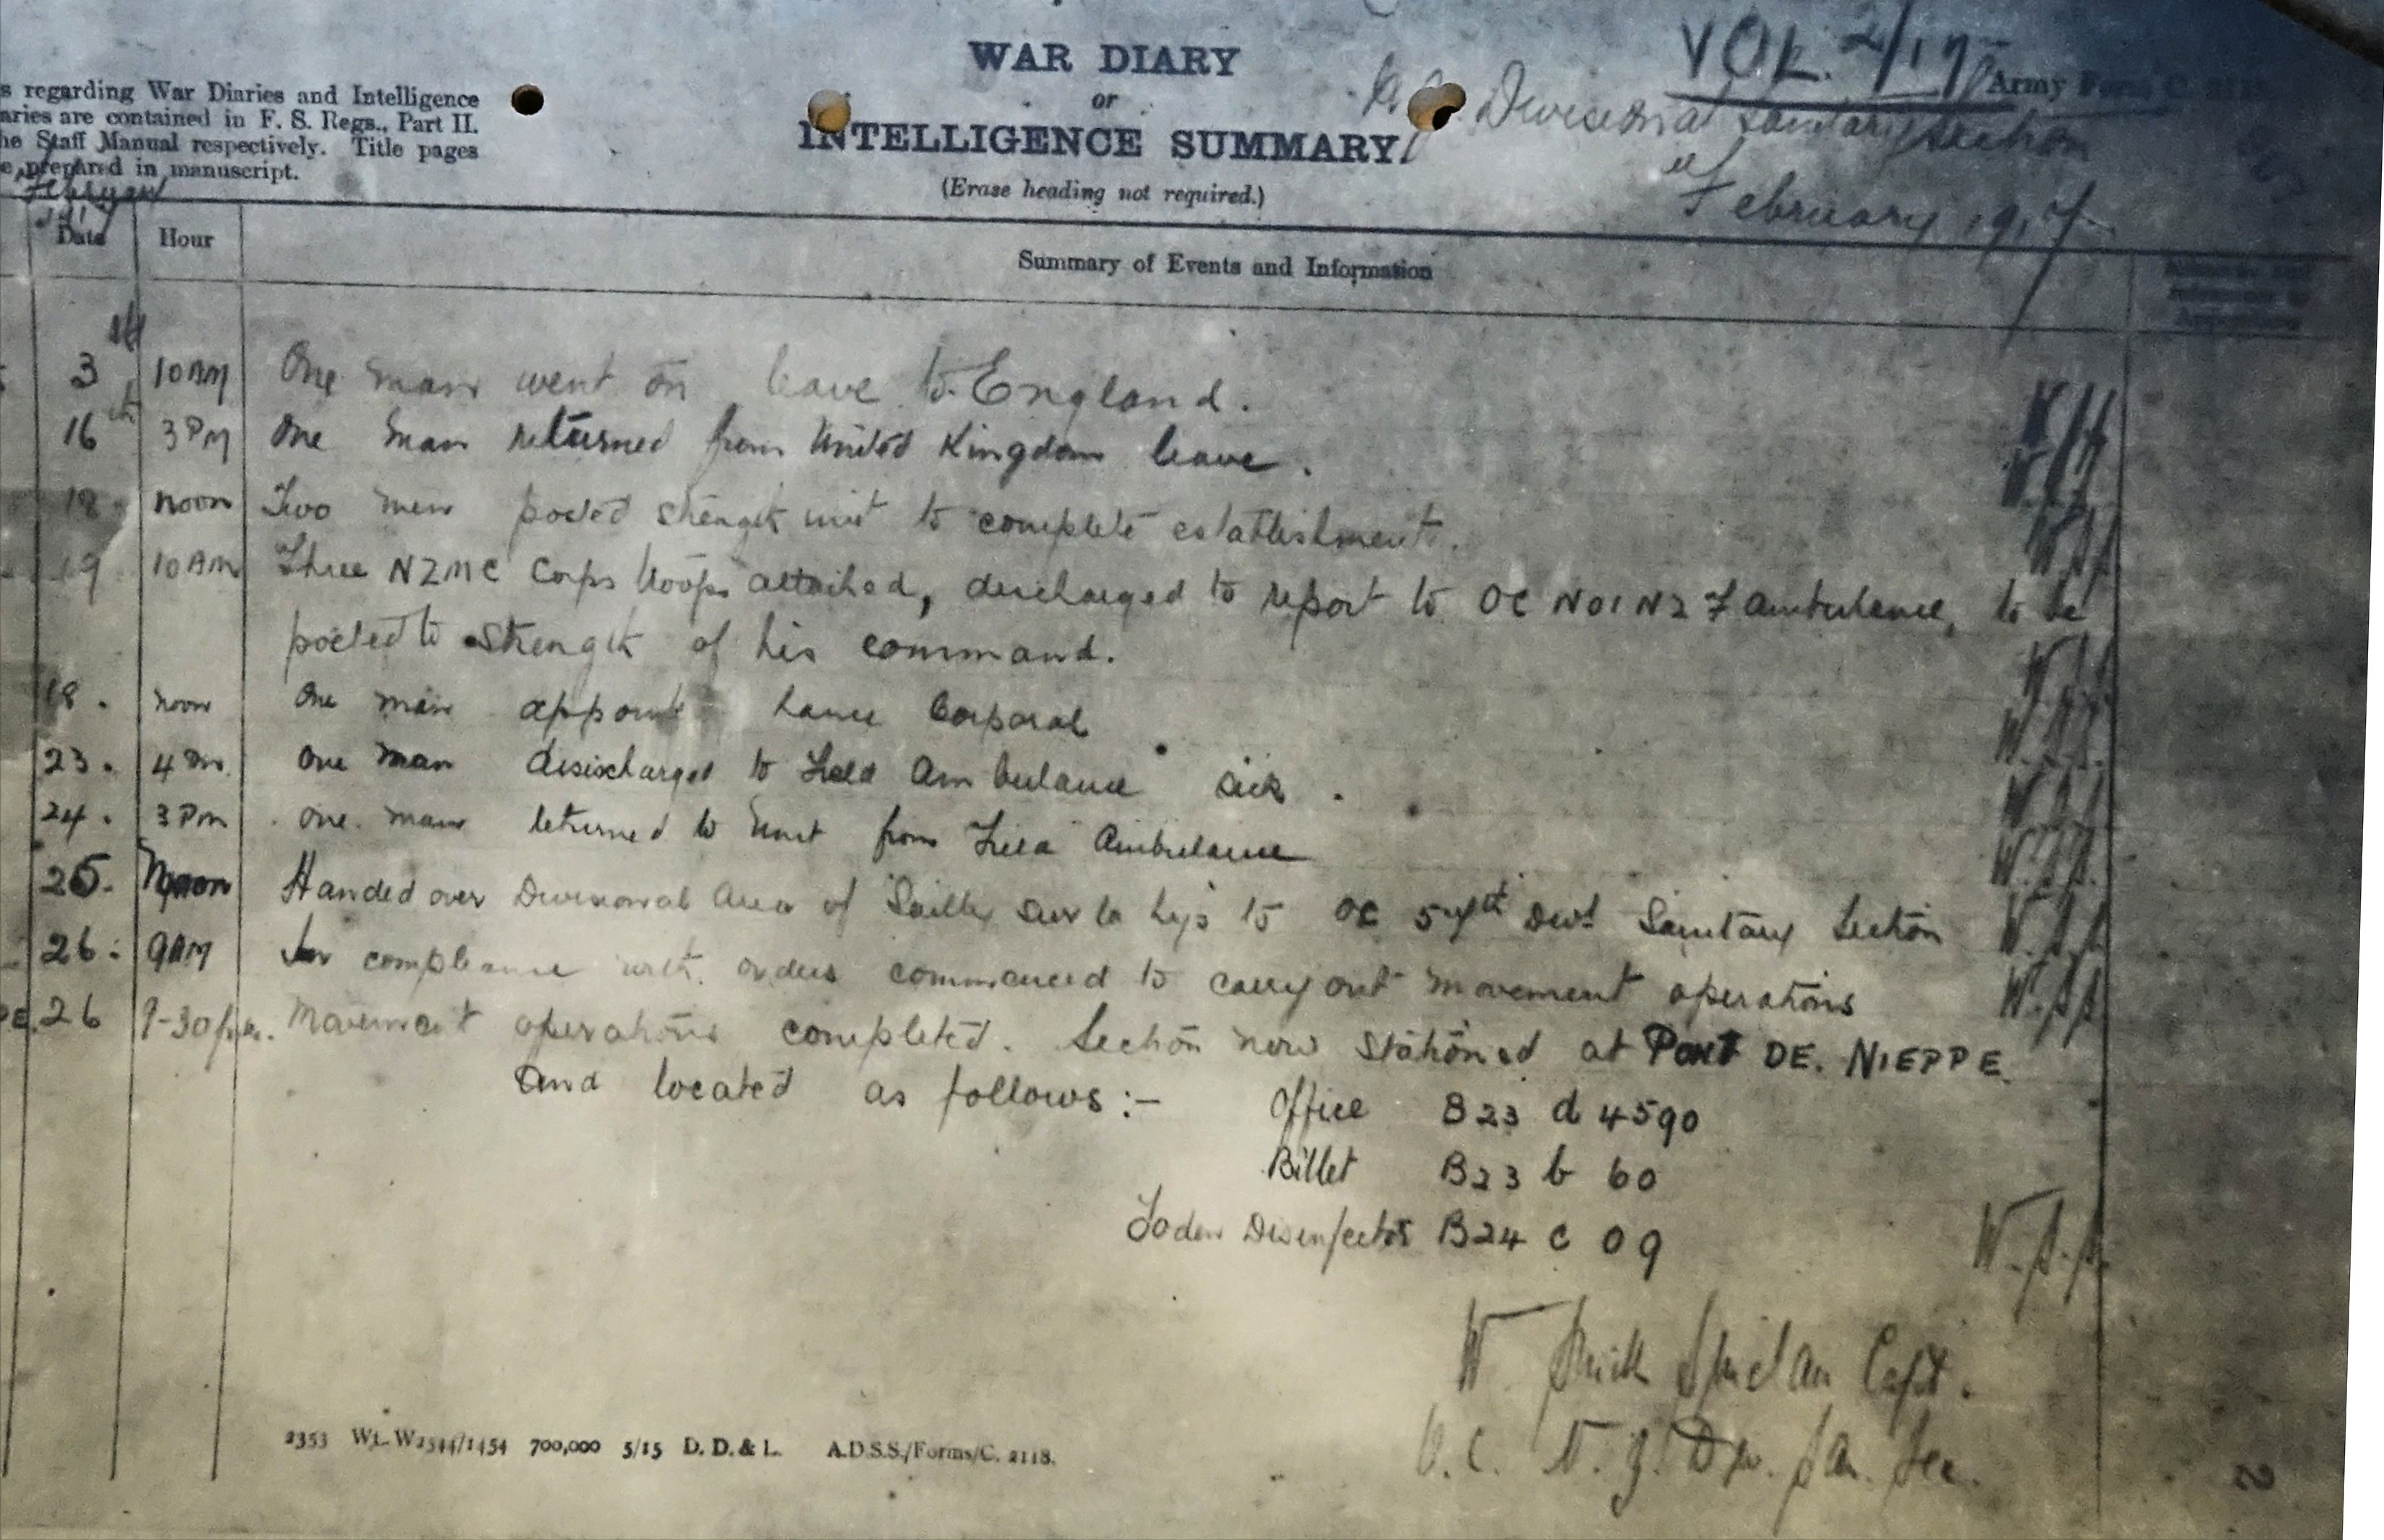 WAR DIARY
or
INTELLIGENCE SUMMARY.
(Erase heading not required.)
s regarding War Diaries and Intelligence
aries are contained in F. S. Regs., Part II.
he Staff Manual respectively. Title pages
e prepared in manuscript.
VOL. 2/17
Army Form C.
Divisional Sanitary Section
February 1917
February
Date Hour Summary of Events and Information
3 10 AM One man went on leave to England.
16th 3 PM One man returned from United Kingdom leave.
18 noon Two men posted strength unit to complete establishment.
19 10 AM Three NZMC Corps troops attached, discharged to report to OC No1 NZ F Ambulance, to be
posted to strength of his command.
18. noon One man appoint Lance Corporal
23. 4 Pm. One man disischarged to Field Ambulance sick.
24. 3 Pm One man returned to Unit from Field Ambulance
25. Noon Handed over Divisional Area of Sailly sur la Lys to OC 57th Divl Sanitary Section W.S.S.
26. 9AM In compliance with orders commenced to carry out movement operations W.S.S.
26 1-30 p.m. Movement operations completed. Section now stationed at PONT DE. NIEPPE.
and located as follows :- Office B23 d 4590
Billet B23 b 60
Foden Disinfector B24 c 09
W.S.S.
W Capt.
O.C. N.Z. Div. San. Sec.
2353 Wt. W2544/1454 700,000 5/15 D. D. & L. A.D.S.S./Forms/C. 2118.
2